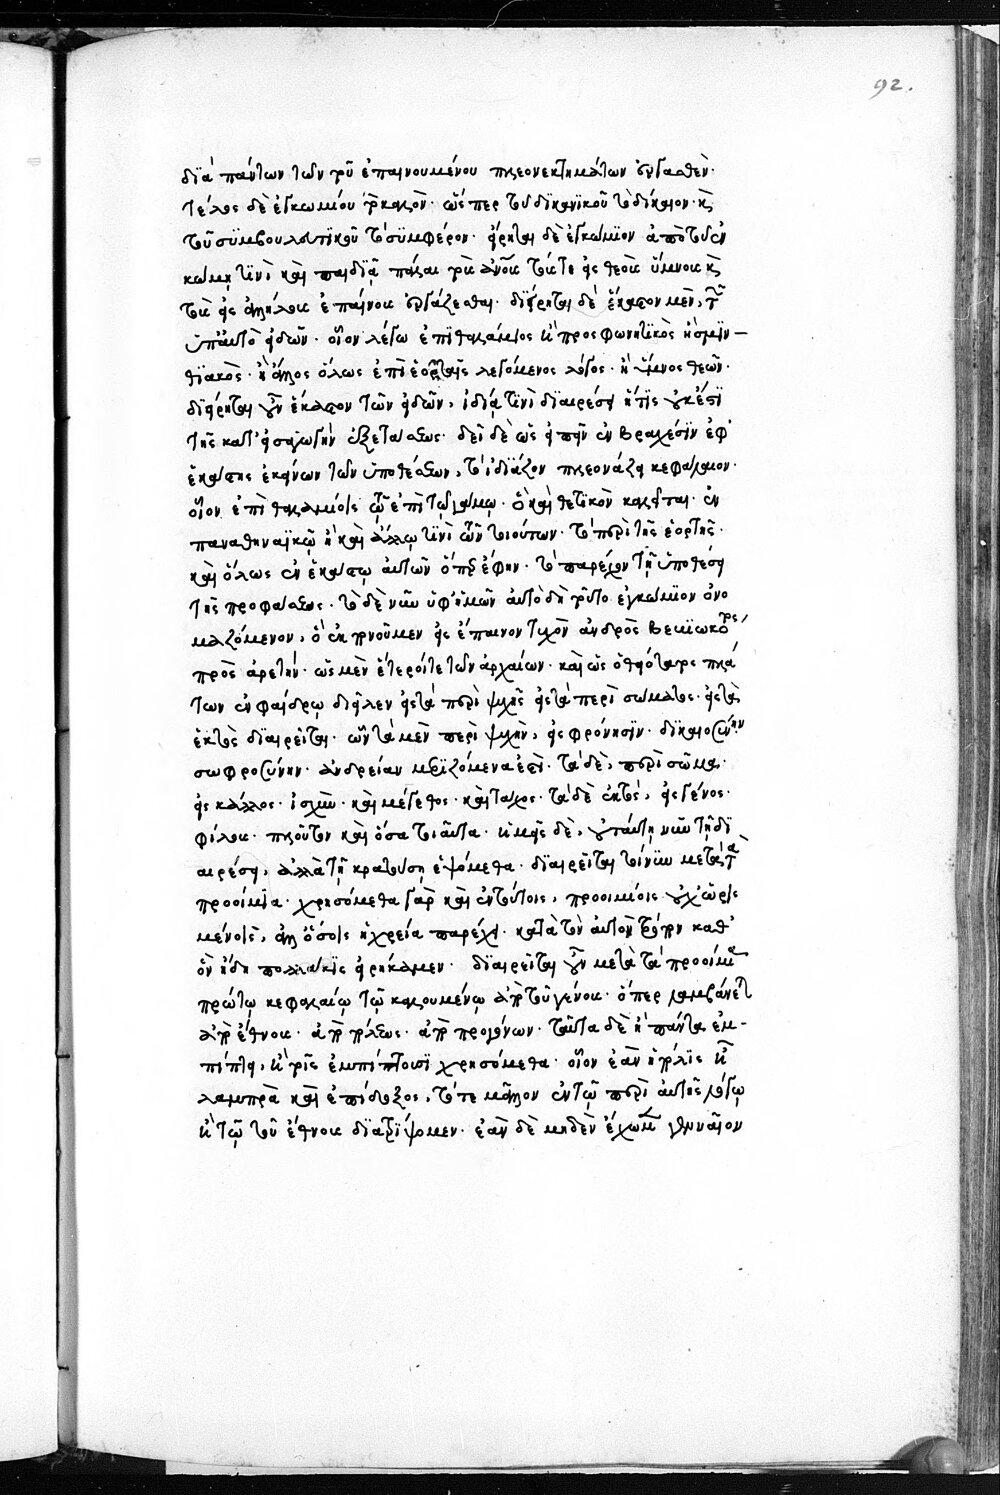 92.
διὰ πάντων τῶν τοῦ ἐπαινουμένου πλεονεκτημάτων ἐργασθὲν·
τέλος δὲ ἐγκωμίου τὸ καλόν· ὥσπερ τοῦ δικανικοῦ τὸ δίκαιον· κ
τοῦ συμβουλευτικοῦ τὸ συμφέρον· εἴρηται δὲ ἐγκώμιον ἀπὸ τοῦ ἐν
κώμη τινὶ καὶ παιδιᾷ πάλαι τοὺς ἀνους τούς τε εἰς θεοὺς ὕμνους κ
τοὺς εἰς ἀλλήλους ἐπαίνους ἐργάζεσθαι· διήρηται δὲ ἕκαστον μὲν, τ
ὑπ' αὐτὸ εἰδῶν· οἷον λέγω ἐπιθαλάμιος κ προσφωνητικὸς ἢ σμιν-
θιακὸς· ἢ ἄλλος ὅλως ἐπὶ ἑορταῖς λεγόμενος λόγος· ἢ ὕμνος θεῶν·
διήρηται οὖν ἕκαστον τῶν εἰδῶν, ἰδίᾳ τινὶ διαιρέσει ἥτις οὐκ ἔστι
τῆς κατ' εἰσαγωγὴν ἐξετάσεως· δεῖ δὲ ὡς εἰπεῖν ἐν βραχέσιν ἐφ'
ἑκάστης ἐκείνων τῶν ὑποθέσεων, τὸ ἰδιάζον πλεονάζει κεφάλαιον·
οἷον ἐπιθαλαμίοις ὧ ἐπὶ τῷ γάμῳ· ὃ καὶ θετικὸν καλεῖται· ἐν
παναθηναϊκῷ ἢ καὶ ἄλλῳ τινὶ τῶν τοιούτων· τὸ περὶ τῆς ἑορτῆς·
καὶ ὅλως ἐν ἑκάστῳ αὐτῶν ὅπερ ἔφην· τὸ παρέχον τῇ ὑποθέσει
τῆς προφάσεως· τὸ δὲ νῦν ὑφ' ἡμῶν αὐτὸ δὴ τοῦτο ἐγκώμιον ὀνο
μαζόμενον, ὃ ἐκτείνουμεν εἰς ἔπαινον τυχὸν ἀνδρὸς βεβιωκότος
πρὸς ἀρετήν· ὡς μὲν ἕτεροί τε τῶν ἀρχαίων· καὶ ὡς ὁ θειότατος πλά
των ἐν φαίδρῳ διεῖλεν εἰς τὰ περὶ ψυχῆς εἰς τὰ περὶ σώματος· εἰς τὰ
ἐκτὸς διαιρεῖται· ὧν τὰ μὲν περὶ ψυχὴν, εἰς φρόνησιν· δικαιοσύνην
σωφροσύνην· ἀνδρείαν μεριζόμενα ἐστὶ· τὰ δὲ, περὶ σῶμα·
εἰς κάλλος· ἰσχὺν· καὶ μέγεθος· καὶ τάχος· τὰ δὲ ἐκτὸς, εἰς γένος·
φίλους· πλοῦτον καὶ ὅσα τοιαῦτα· ἡμεῖς δὲ, οὐ ταύτῃ νῦν τῇ δι
αιρέσει, ἀλλὰ τῇ κρατούσῃ ἑψόμεθα· διαιρεῖται τοίνυν μετὰ τὰ
προοίμια· χρησόμεθα γὰρ καὶ ἐν τούτοις, προοιμίοις οὐχ ὡρισ
μένοις, ἀλλ' ὅσοις ἡ χρεία παρέχει· κατὰ τὸν αὐτὸν τρόπον καθ'
ὃν ἤδη πολλάκις εἰρήκαμεν· διαιρεῖται οὖν μετὰ τὰ προοίμια
πρώτῳ κεφαλαίῳ τῷ καλουμένῳ ἀπὸ τοῦ γένους· ὅπερ λαμβάνεται
ἀπὸ ἔθνους· ἀπὸ πόλεως· ἀπὸ προγόνων· ταῦτα δὲ ἢ πάντα ἐμ-
πίπτει, κ τοῖς ἐμπίπτουσι χρησόμεθα· οἷον ἐὰν ἡ πόλις ᾖ
λαμπρὰ καὶ ἐπίδοξος, τότε μᾶλλον ἐν τῷ περὶ αὐτῆς λόγῳ
κ τῷ τοῦ ἔθνους διατρίψομεν· ἐὰν δὲ μηδὲν ἔχωμεν γενναῖον